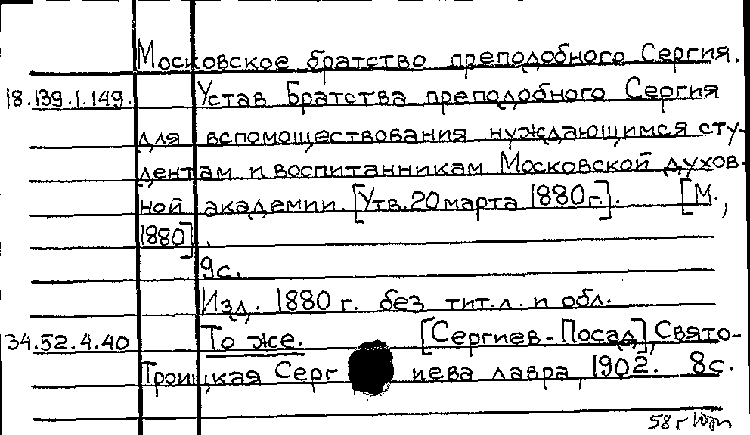 Московское братство преподобного Сергия.
18.139.1.149. Устав Братства преподобного Сергия
для вспомоществования нуждающимся сту-
дентам и воспитанникам Московской духов-
ной академии. [Утв. 20 марта 1880 г.]. [М.,
1880].
9с.
Изд. 1880 г. без тит. л. и обл.
34.52.4.40 То же. [Сергиев-Посад], Свято-
Троицкая Сергиева лавра, 1902. 8с.
58г